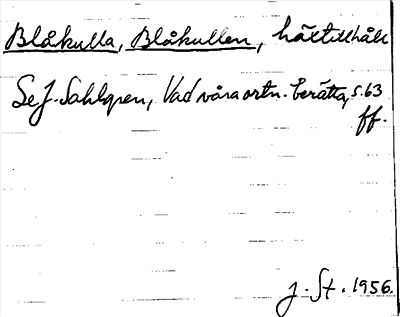 Blåkulla, Blåkullen, häxtillhåll
Se J. Sahlgren, Vad våra ortn. berätta, s. 63
ff.
J. St. 1956.